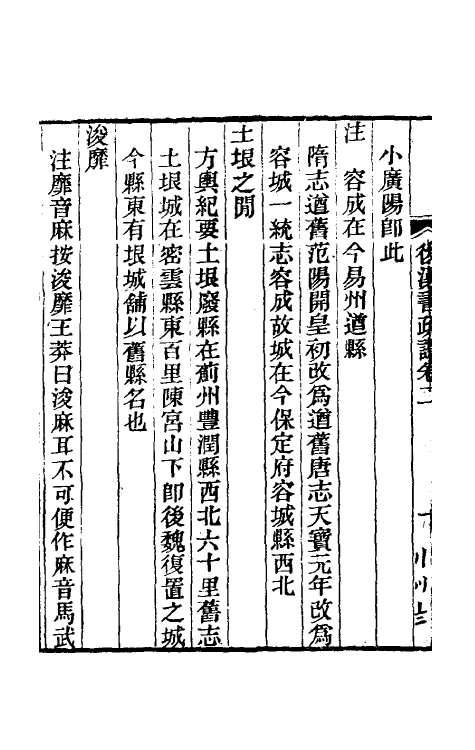 小廣陽卽此
注　容成在今易州遒縣
隋志遒舊范陽開皇初改爲遒舊唐志天寶元年改爲
容城一統志容成故城在今保定府容城縣西北
土垠之閒
方輿紀要土垠廢縣在薊州豐潤縣西北六十里舊志
土垠城在密雲縣東百里陳宮山下卽後魏復置之城
今縣東有垠城舖以舊縣名也
浚靡
注靡音麻按浚靡王莽曰浚麻耳不可便作麻音馬武
後漢書疏證卷二